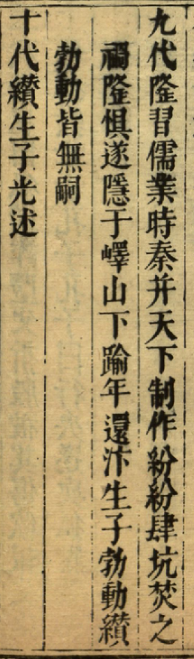 九代隆習儒業時秦并天下制作紛紛肆坑焚之
禍隆惧遂隱于嶧山下踰年還汴生子勃動纉
勃動皆無嗣
十代纉生子光述